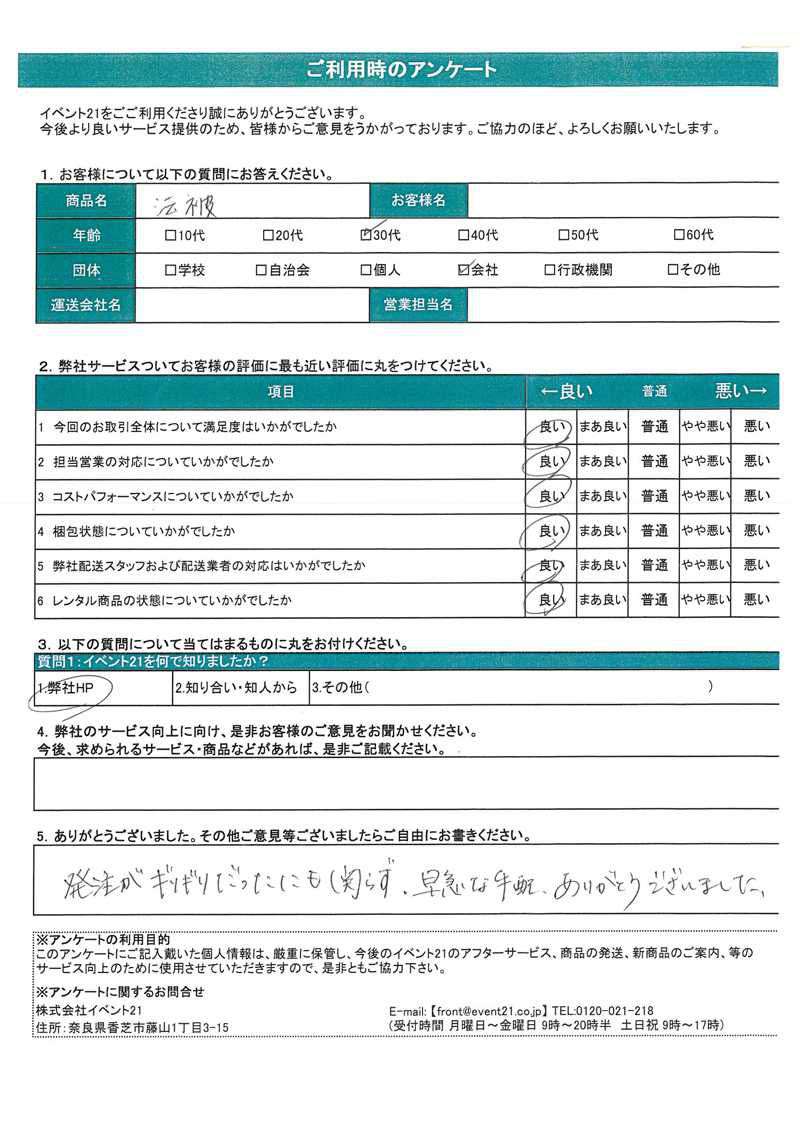 ご利用時のアンケート
イベント21をごご利用くださり誠にありがとうございます。
今後より良いサービス提供のため、皆様からご意見をうかがっております。ご協力のほど、よろしくお願いいたします。
1. お客様について以下の質問にお答えください。
商品名 法被 お客様名
年齢 □10代 □20代 ☑30代 □40代 □50代 □60代
団体 □学校 □自治会 □個人 ☑会社 □行政機関 □その他
運送会社名 営業担当名
2. 弊社サービスついてお客様の評価に最も近い評価に丸をつけてください。
項目 ←良い 普通 悪い→
1 今回のお取引全体について満足度はいかがでしたか 良い まあ良い 普通 やや悪い 悪い
2 担当営業の対応についていかがでしたか 良い まあ良い 普通 やや悪い 悪い
3 コストパフォーマンスについていかがでしたか 良い まあ良い 普通 やや悪い 悪い
4 梱包状態についていかがでしたか 良い まあ良い 普通 やや悪い 悪い
5 弊社配送スタッフおよび配送業者の対応はいかがでしたか 良い まあ良い 普通 やや悪い 悪い
6 レンタル商品の状態についていかがでしたか 良い まあ良い 普通 やや悪い 悪い
3. 以下の質問について当てはまるものに丸をお付けください。
質問1:イベント21を何で知りましたか？
1.弊社HP 2.知り合い・知人から 3.その他( )
4. 弊社のサービス向上に向け、是非お客様のご意見をお聞かせください。
今後、求められるサービス・商品などがあれば、是非ご記載ください。
5. ありがとうございました。その他ご意見等ございましたらご自由にお書きください。
発注がギリギリだったにも関らず、早急な手配、ありがとうございました。
※アンケートの利用目的
このアンケートにご記入戴いた個人情報は、厳重に保管し、今後のイベント21のアフターサービス、商品の発送、新商品のご案内、等の
サービス向上のために使用させていただきますので、是非ともご協力下さい。
※アンケートに関するお問合せ
株式会社イベント21 E-mail:【front@event21.co.jp】 TEL:0120-021-218
住所:奈良県香芝市藤山1丁目3-15 (受付時間 月曜日～金曜日 9時～20時半 土日祝 9時～17時)